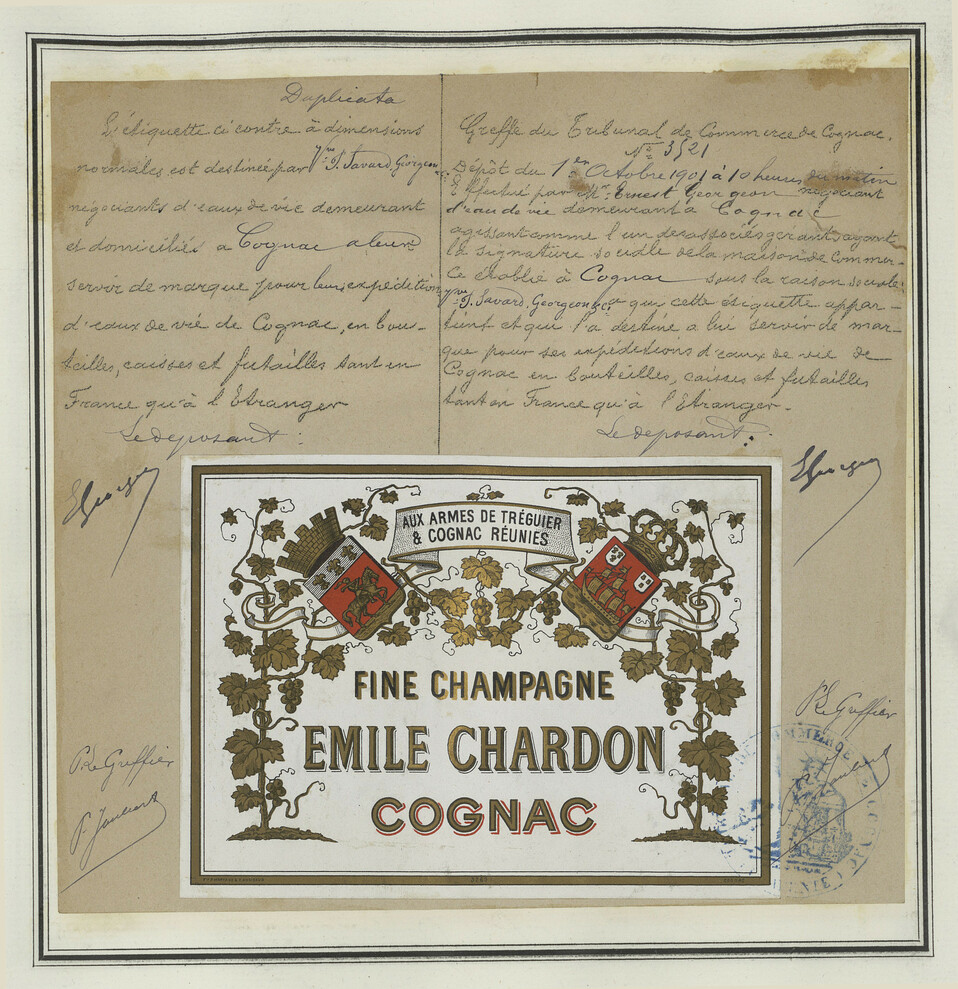 Duplicata
L'étiquette ci contre à dimensions
normales est destinée par J. Savard, Georgeon
négociants d'eaux de vie demeurant
et domiciliés a Cognac a leur
servir de marque pour leurs expéditions
d'eaux de vie de Cognac, en bou-
teilles, caisses et futailles tant en
France qu'à l'Etranger
Le déposant :
Georgeon
Greffe du Tribunal de Commerce de Cognac.
No 3521
Dépôt du 1er Octobre 1901 à 10 heures du matin
Effectué par Mr. Ernest Georgeon négociant
d'eau de vie demeurant a Cognac
agissant comme l'un des associés gérants, ayant
la signature sociale de la maison de Commer-
ce établie à Cognac sous la raison sociale:
J. Savard, Georgeon & Cie que cette étiquette appar-
tient et qu'il l'a destine a lui servir de mar-
que pour ses expéditions d'eaux de vie de
Cognac en bouteilles, caisses et futailles
tant en France qu'à l'Etranger.
Le déposant :
Georgeon
AUX ARMES DE TRÉGUIER
& COGNAC RÉUNIES
FINE CHAMPAGNE
EMILE CHARDON
COGNAC
P. Le Greffier
P. Le Greffier